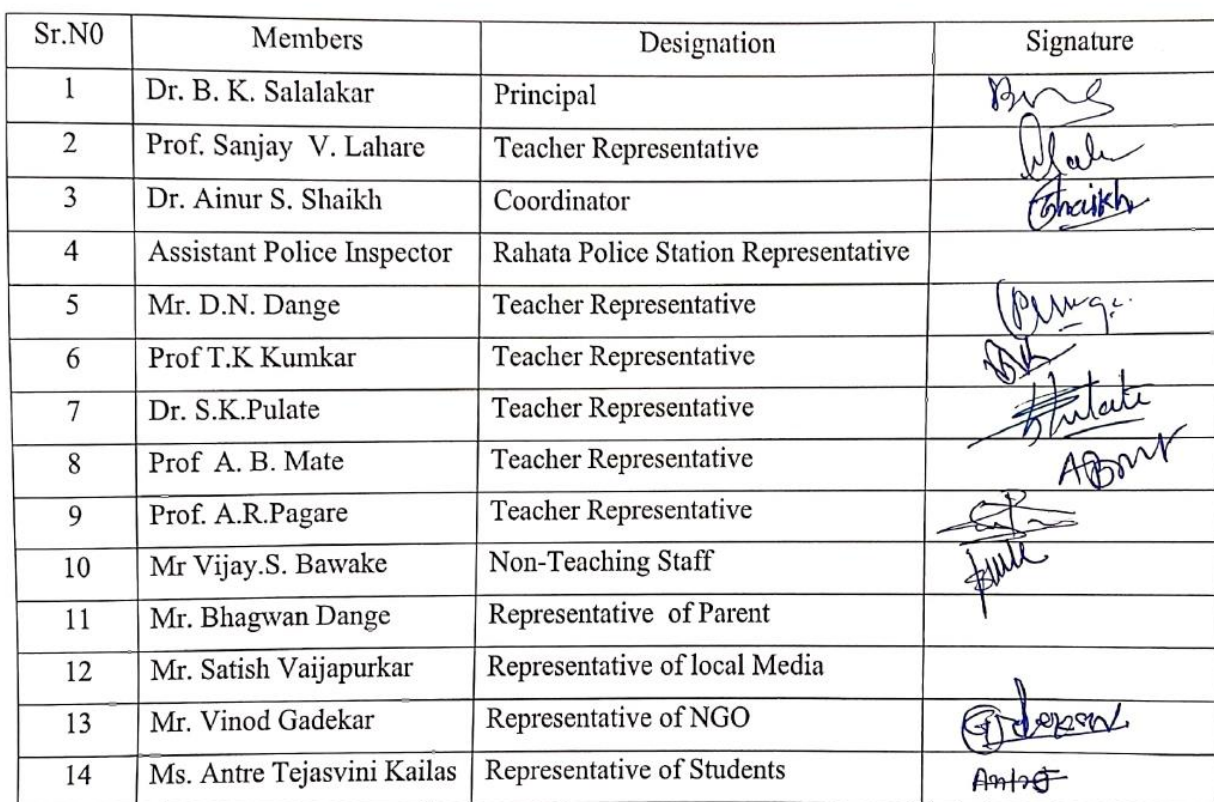 Sr.N0 Members Designation Signature
1 Dr. B. K. Salalakar Principal
2 Prof. Sanjay V. Lahare Teacher Representative
3 Dr. Ainur S. Shaikh Coordinator Shaikh
4 Assistant Police Inspector Rahata Police Station Representative
5 Mr. D.N. Dange Teacher Representative
6 Prof T.K Kumkar Teacher Representative
7 Dr. S.K.Pulate Teacher Representative
8 Prof A. B. Mate Teacher Representative
9 Prof. A.R.Pagare Teacher Representative
10 Mr Vijay.S. Bawake Non-Teaching Staff
11 Mr. Bhagwan Dange Representative of Parent
12 Mr. Satish Vaijapurkar Representative of local Media
13 Mr. Vinod Gadekar Representative of NGO
14 Ms. Antre Tejasvini Kailas Representative of Students